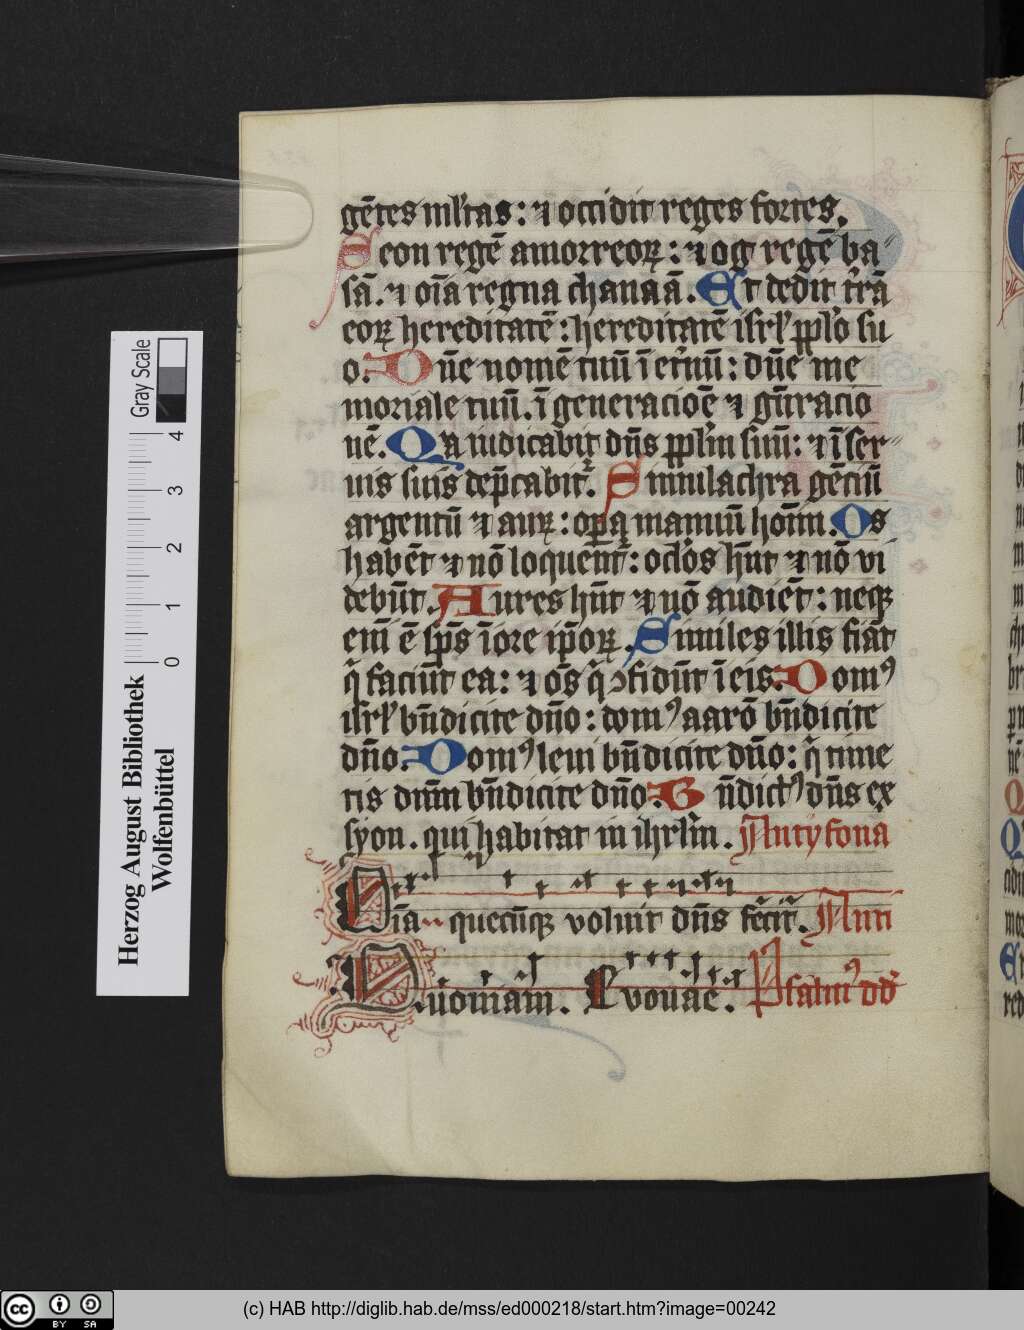 gētes ml'tas: ⁊ occidit reges fortes.
Seon regē amorreoꝝ: ⁊ og regē ba
sā. ⁊ oīa regna chanaā. Et dedit t'rā
eoꝝ hereditatē: hereditatē isrl' pplo su
o. Dn̄e nomē tuū ī et'nū: dn̄e me
moriale tuū. ī generacioē ⁊ gn̄racio
nē. Qa iudicabit dn̄s pplm suū: ⁊ ī ser
uis suis dep̄cabit'. Simulachra gēciū
argentū ⁊ auꝝ: opa manuū hom̄. Os
habēt ⁊ nō loquent': oclos hn̄t ⁊ nō vi
debūt. Aures hn̄t ⁊ nō audiēt: neqꝫ
eni ē sp̄s ī ore ip̄oꝝ. Similes illis fiāt
q̄ faciūt ea: ⁊ om̄s q̄ ꝯfidūt ī eis. Domꝰ
isrl' bn̄dicite dn̄o: domꝰ aarō bn̄dicite
dn̄o. Domꝰ leui bn̄dicite dn̄o: q̄ time
tis dnm̄ bn̄dicite dn̄o. Bn̄dictꝰ dn̄s ex
syon. qui habitat in ihrlm̄. Antyfona
Oīa quecūqꝫ voluit dn̄s fecit. Anti
Quoniam. Evouae. Psalmꝰ dd
Gray Scale
4
3
2
1
0
Herzog August Bibliothek
Wolfenbüttel
cc BY SA
(c) HAB http://diglib.hab.de/mss/ed000218/start.htm?image=00242